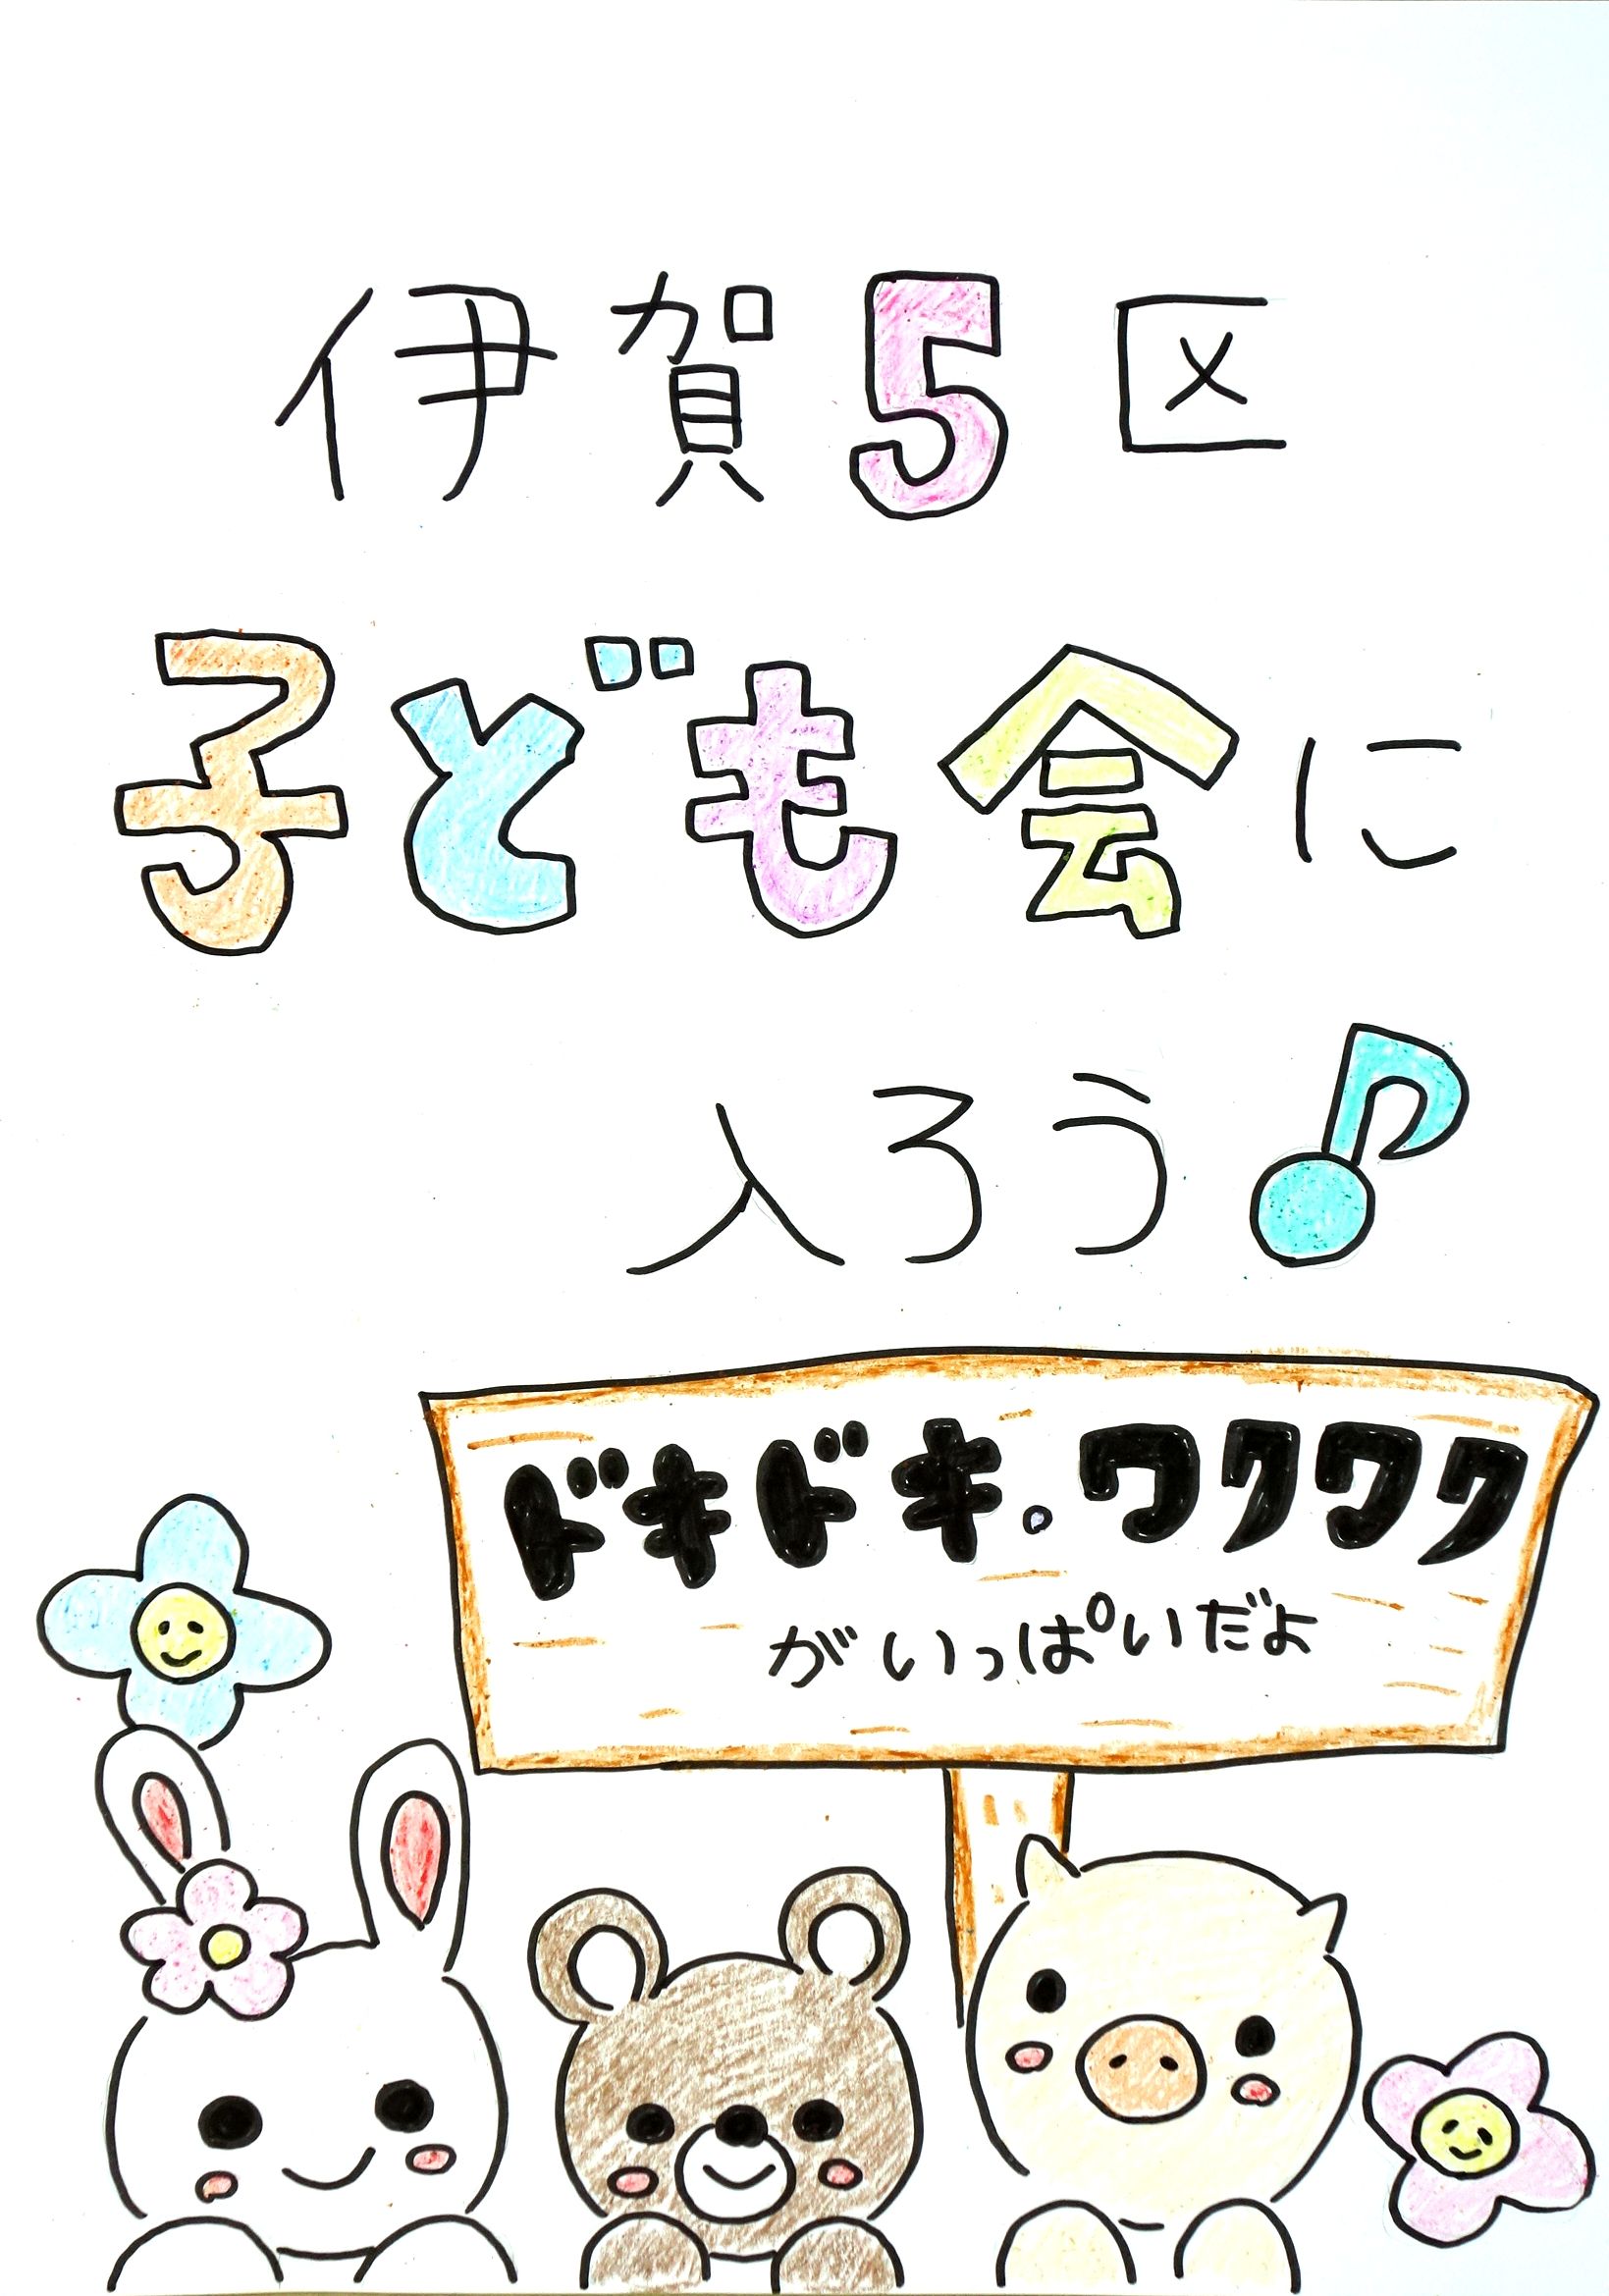 伊賀5区
子ども会に
入ろう♪
ドキドキ。ワクワク
がいっぱいだよ